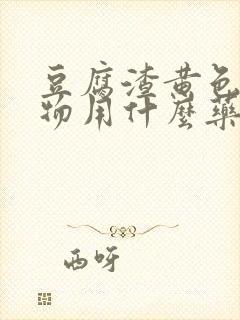 豆腐渣黄色
物用什麼藥
西呀